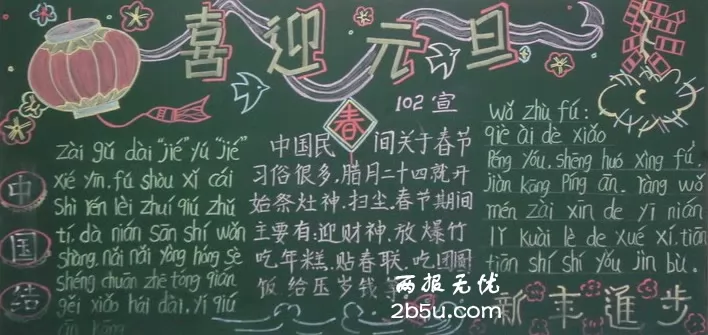 喜迎元旦
102宣
中国结
zài gǔ dài "jié" yú "jié"
xié yīn. fú shòu xǐ cái
shì rén lèi zhuī qiú zhǔ
tí. dà nián sān shí wǎn
shàng, nǎi nǎi yòng hóng sè
shéng chuān zhe tóng qián
gěi xiǎo hái dài. yì qiú
píng
春
中国民间关于春节
习俗很多,腊月二十四就开
始祭灶神.扫尘.春节期间
主要有:迎财神.放爆竹
吃年糕.贴春联.吃团圆
饭给压岁钱等
wǒ zhù fú:
qīe ài dè xiǎo
Péng yǒu. shēng huó xìng fú,
jiàn kāng Píng ān. ràng wǒ
mén zài xīn de yī nián
lǐ kuài lè de xué xí. tiān
tiān shí shí yǒu jìn bù.
新主進步
两报无优
2b5u.com